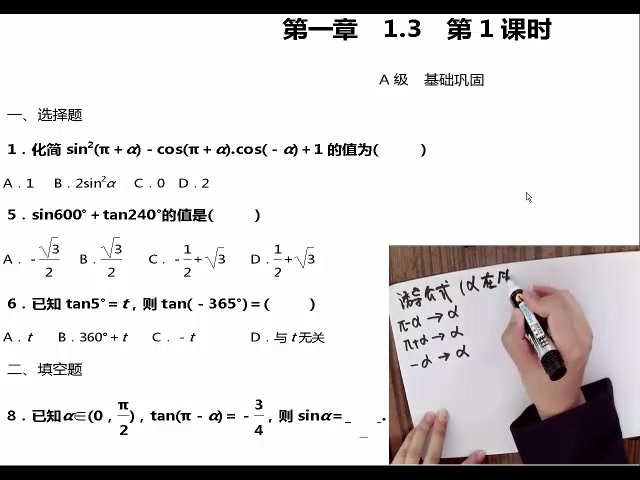 第一章 1.3 第1课时
A级 基础巩固
一、选择题
1．化简 sin²(π＋α)－cos(π＋α).cos(－α)＋1 的值为( )
A．1 B．2sin²α C．0 D．2
5．sin600°＋tan240°的值是( )
A．-√3/2 B．√3/2 C．-1/2+√3 D．1/2+√3
6．已知 tan5°＝t，则 tan(－365°)＝( )
A．t B．360°＋t C．－t D．与 t 无关
二、填空题
8．已知α∈(0，π/2)，tan(π－α)＝－3/4，则 sinα=_ _.
诱导公式 (α在
π-α → α
π+α → α
-α → α